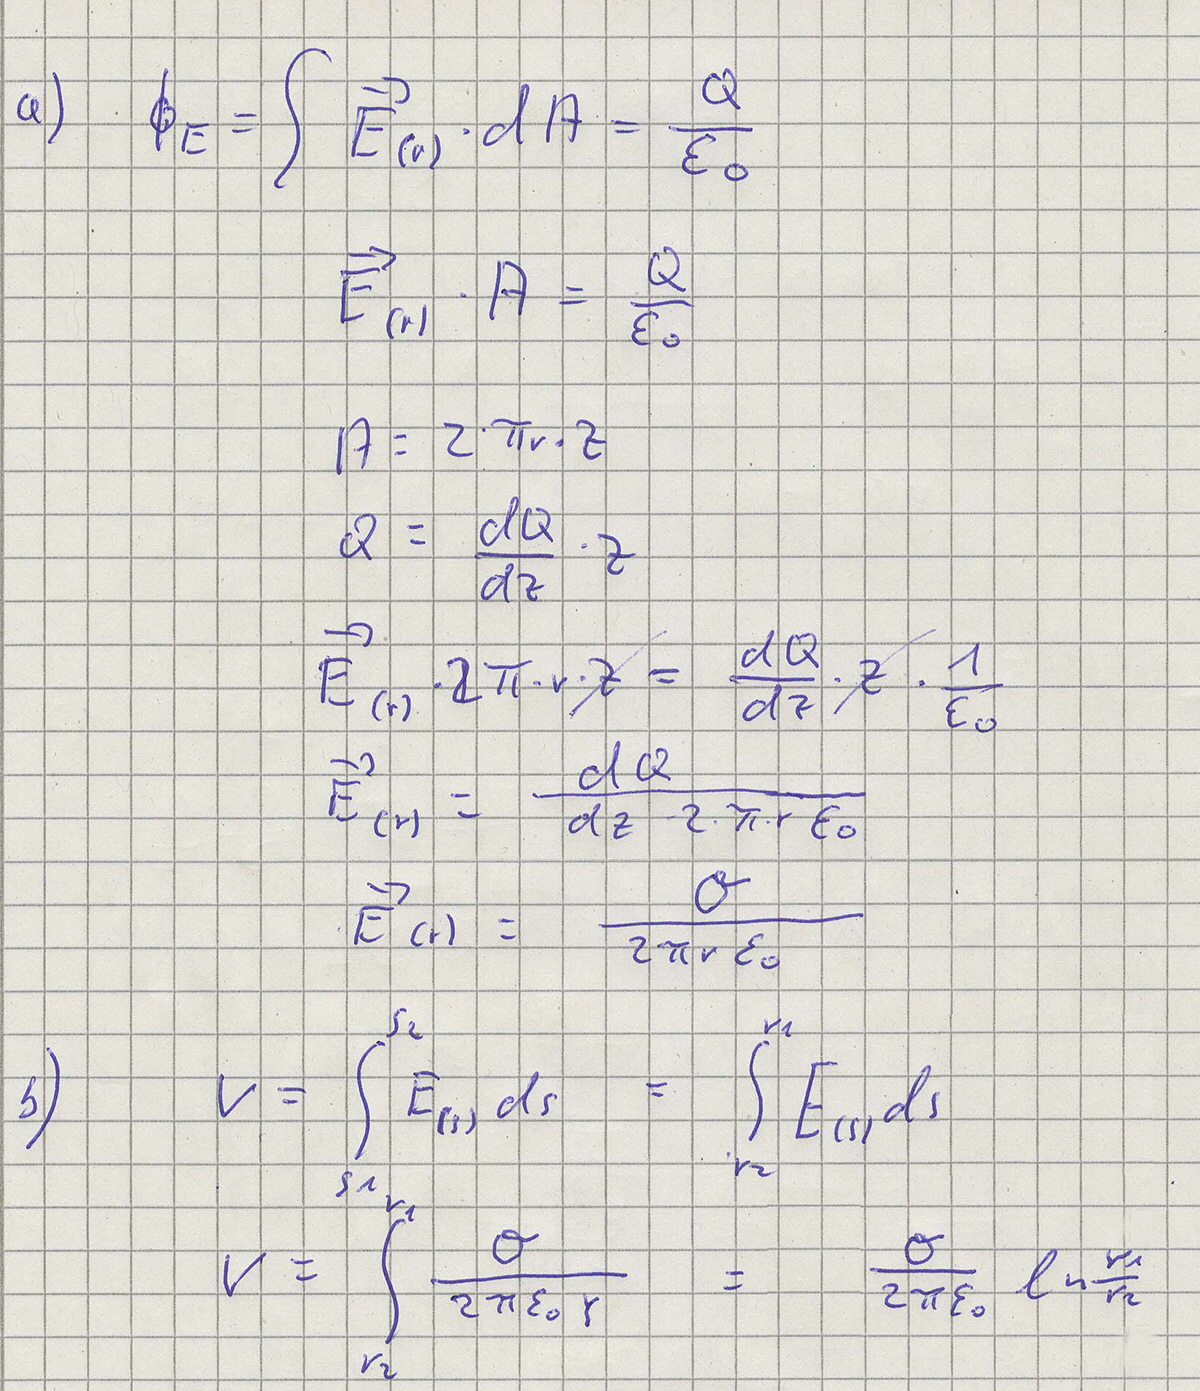 a) ϕ_E = ∫ E⃗_(r) · dA = Q/ε₀
E⃗_(r) · A = Q/ε₀
A = 2·πr·z
Q = dQ/dz · z
E⃗_(r) · 2π·r·z = dQ/dz · z · 1/ε₀
E⃗_(r) = dQ/(dz · 2·π·r ε₀)
E⃗_(r) = σ/(2πr ε₀)
b) V = ∫_{s1}^{s2} E_(s) ds = ∫_{r2}^{r1} E_(s) ds
V = ∫_{r2}^{r1} σ/(2πε₀ r) = σ/(2πε₀) ln r1/r2